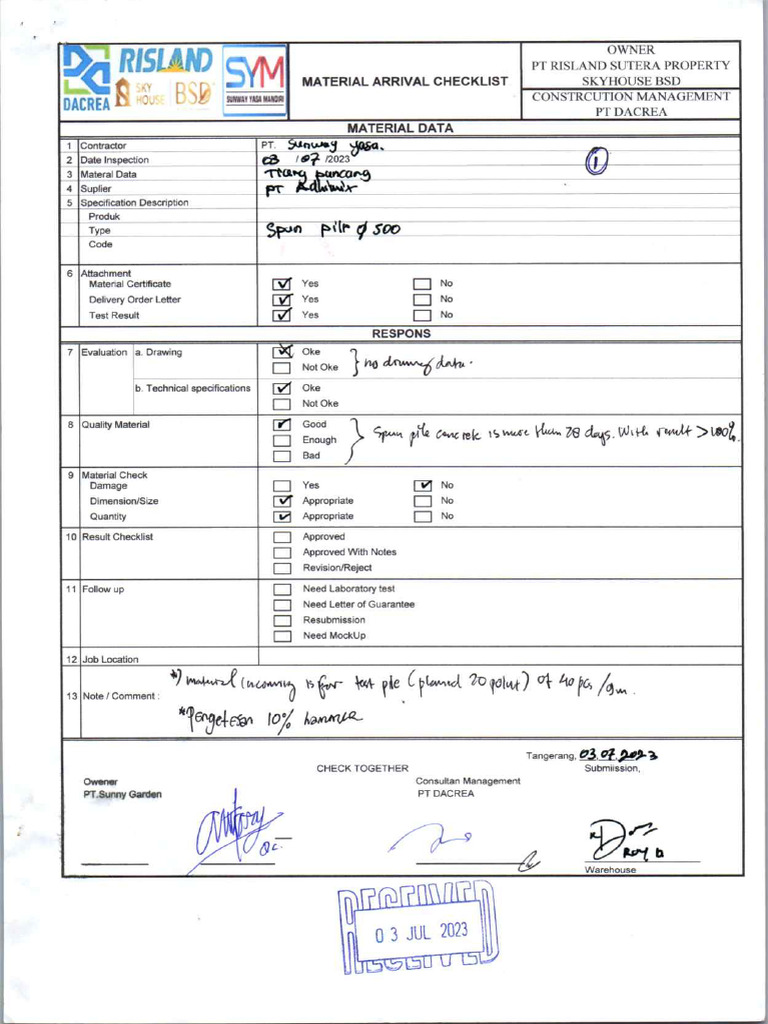 DACREA
RISLAND
SKY HOUSE BSD
SYM
SUNWAY YASA MANDIRI
MATERIAL ARRIVAL CHECKLIST
OWNER
PT RISLAND SUTERA PROPERTY
SKYHOUSE BSD
CONSTRCUTION MANAGEMENT
PT DACREA
MATERIAL DATA
1 Contractor PT. Sunway Yasa.
2 Date Inspection 03 /07 /2023
1
3 Materal Data Tiang pancang
4 Suplier PT Adhimix
5 Specification Description
Produk
Type Spun pile ϕ 500
Code
6 Attachment
Material Certificate ✓ Yes No
Delivery Order Letter ✓ Yes No
Test Result ✓ Yes No
RESPONS
7 Evaluation a. Drawing Oke
Not Oke
no drawing data.
b. Technical specifications ✓ Oke
Not Oke
8 Quality Material ✓ Good
Enough
Bad
Spun pile concrete is more than 28 days. With result > 100%.
9 Material Check
Damage Yes ✓ No
Dimension/Size ✓ Appropriate No
Quantity ✓ Appropriate No
10 Result Checklist Approved
Approved With Notes
Revision/Reject
11 Follow up Need Laboratory test
Need Letter of Guarantee
Resubmission
Need MockUp
12 Job Location
13 Note / Comment :
*) material incoming is for test pile (planned 20 point) of 40 pcs
*Pengetesan 10% hammer
Tangerang, 03.07.2023
CHECK TOGETHER Submiission,
Owener Consultan Management
PT.Sunny Garden PT DACREA
QC.
Warehouse
RECEIVED
03 JUL 2023
RECEIVED